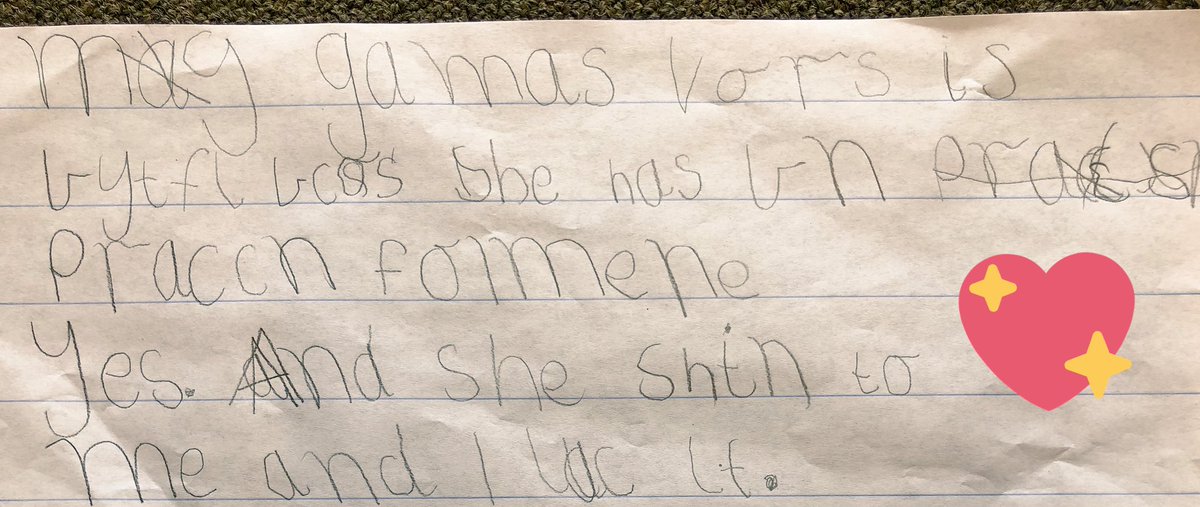 my gamas vors is
bytfl bcos she has bn
praccn formene
yes. And she shin to
me and I lac it.